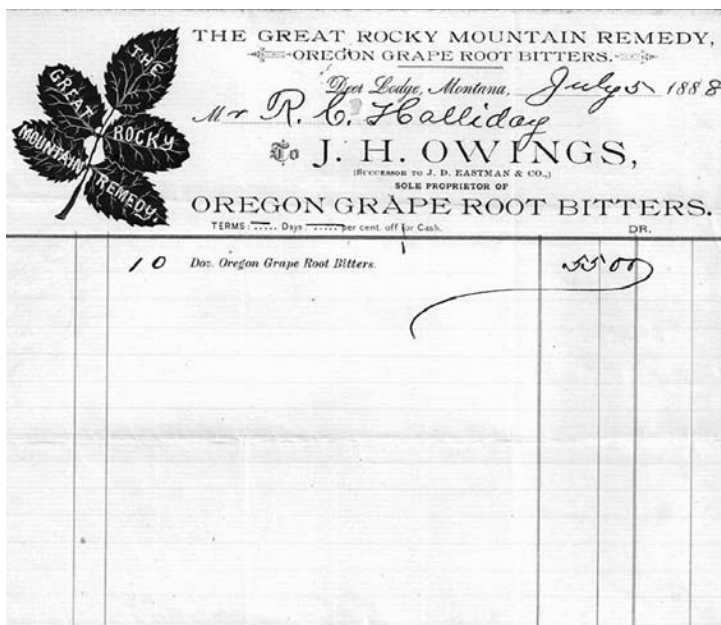 THE GREAT ROCKY MOUNTAIN REMEDY.
THE GREAT ROCKY MOUNTAIN REMEDY,
OREGON GRAPE ROOT BITTERS.
Deer Lodge, Montana, July 5 1888
Mr R. C. Halliday
To J. H. OWINGS,
(SUCCESSOR TO J. D. EASTMAN & CO.,)
SOLE PROPRIETOR OF
OREGON GRAPE ROOT BITTERS.
TERMS: ..... Days ..... per cent. off for Cash. DR.
10 Doz. Oregon Grape Root Bitters. 55 00